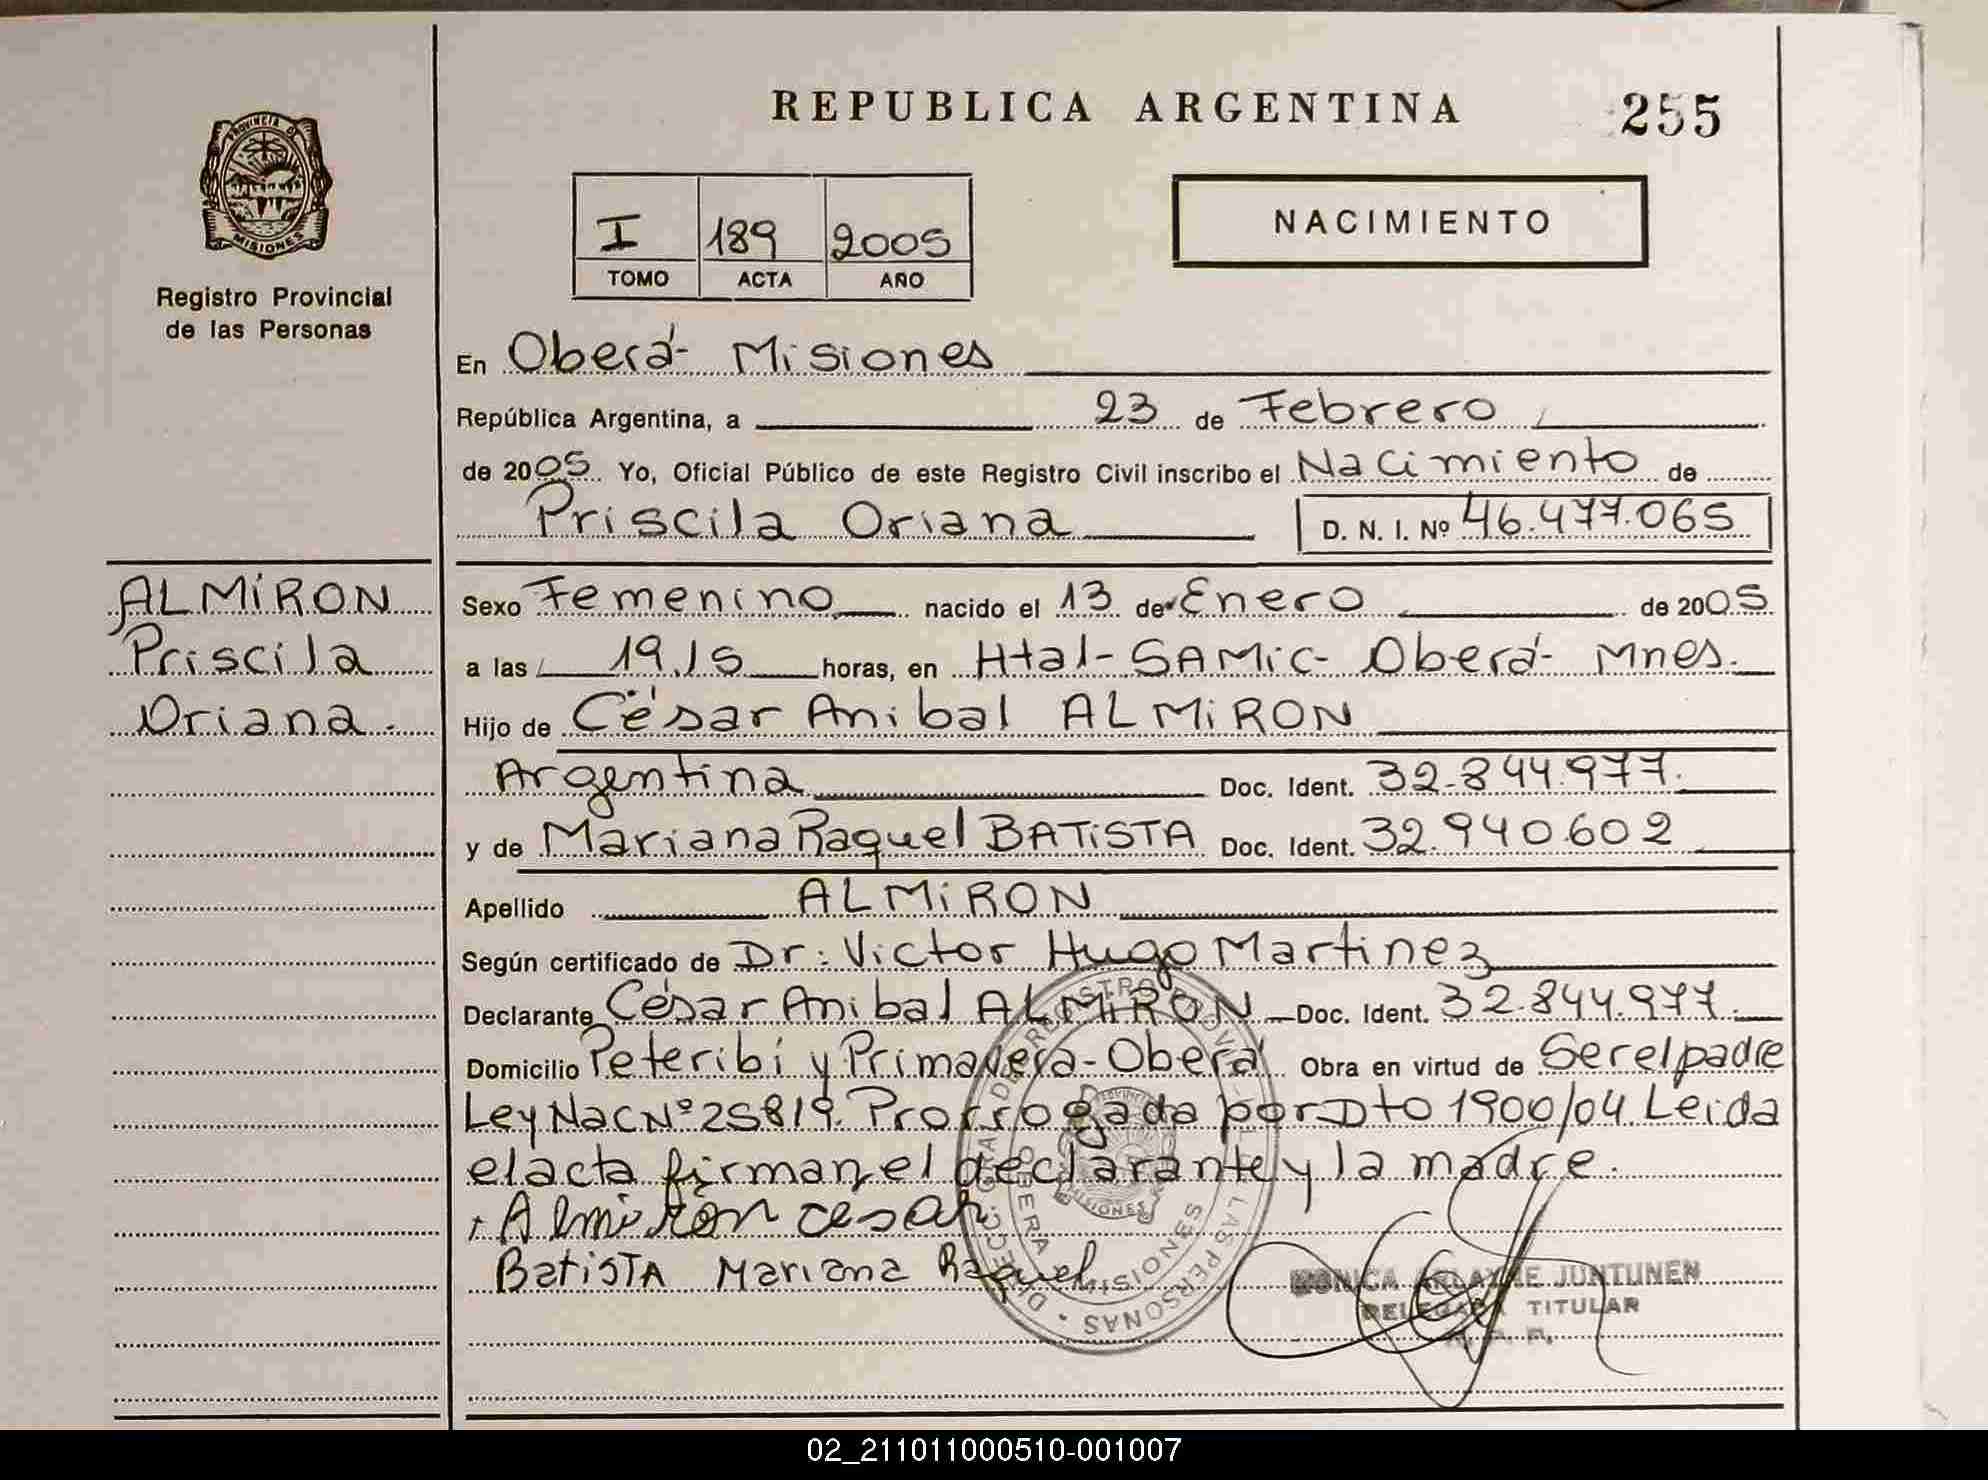 REPUBLICA ARGENTINA
255
PROVINCIA DE
MISIONES
Registro Provincial
de las Personas
I 189 2005
TOMO ACTA AÑO
NACIMIENTO
En Oberá- Misiones
República Argentina, a 23 de Febrero
de 2005 Yo, Oficial Público de este Registro Civil inscribo el Nacimiento de
Priscila Oriana D. N. I. Nº 46.477.065
ALMiRON
Priscila
Oriana.
Sexo Femenino nacido el 13 de Enero de 2005
a las 19.15 horas, en Htal-SAMic- Oberá- Mnes.
Hijo de César Anibal ALMiRON
Argentina Doc. Ident. 32.844.977.
y de Mariana Raquel BATiSTA Doc. Ident. 32.940.602
Apellido ALMiRON
Según certificado de Dr: Victor Hugo Martinez
Declarante César Anibal ALMiRON Doc. Ident. 32.844.977.
Domicilio Peteribí y Primavera-Oberá Obra en virtud de Ser el padre
Ley Nac Nº 25819. Prorrogada por Dto 1900/04. Leida
el acta firman el declarante y la madre.
Almirón cesar
BatiSTA Mariana Raquel
MONICA ARLAYNE JUNTUNEN
DELEGADA TITULAR
OBERA MISIONES
02_211011000510-001007